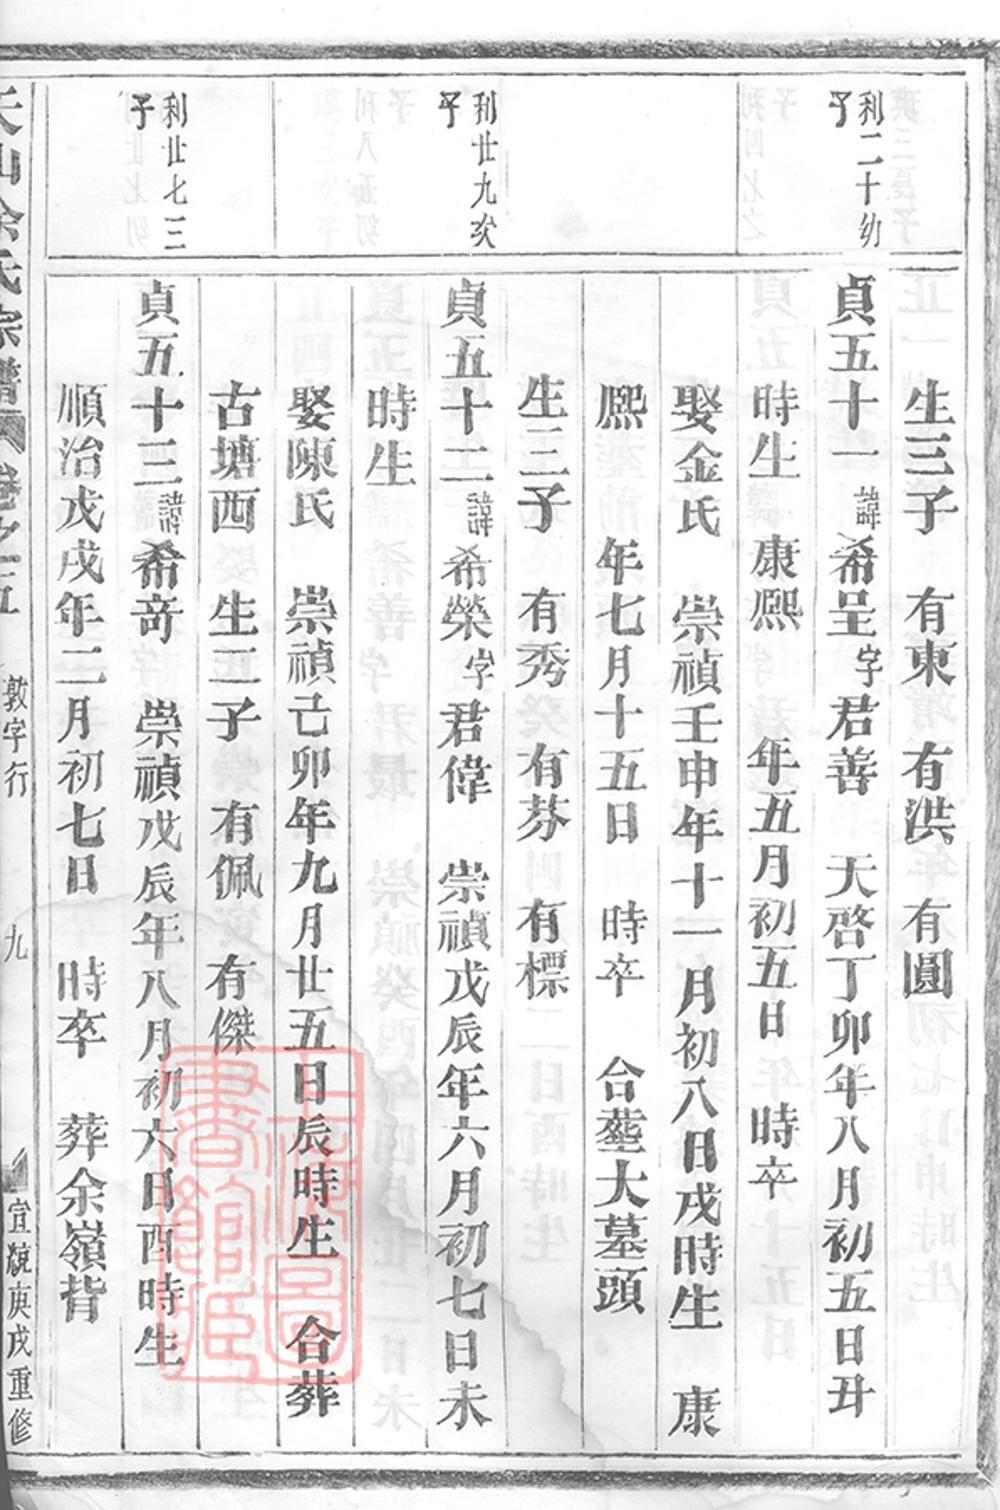 利二十幼
子
生三子　有東　有洪　有圓
貞五十一諱希呈字君善　天啓丁卯年八月初五日丑
時生　康熙　年五月初五日　時卒
娶金氏　崇禎壬申年十一月初八日戌時生　康
熙　年七月十五日　時卒　合塟大墓頭
生三子　有秀　有芬　有標
利廿九次
子
貞五十二諱希榮字君偉　崇禎戊辰年六月初七日未
時生
娶陳氏　崇禎己卯年九月廿五日辰時生　合葬
古塘西　生二子　有佩　有傑
利廿七三
子
貞五十三諱希竒　崇禎戊辰年八月初六日酉時生
順治戊戌年二月初七日　時卒　葬余嶺背
天山余氏宗譜　卷之五　敦字行　九　宣統庚戌重修
上海圖書館藏